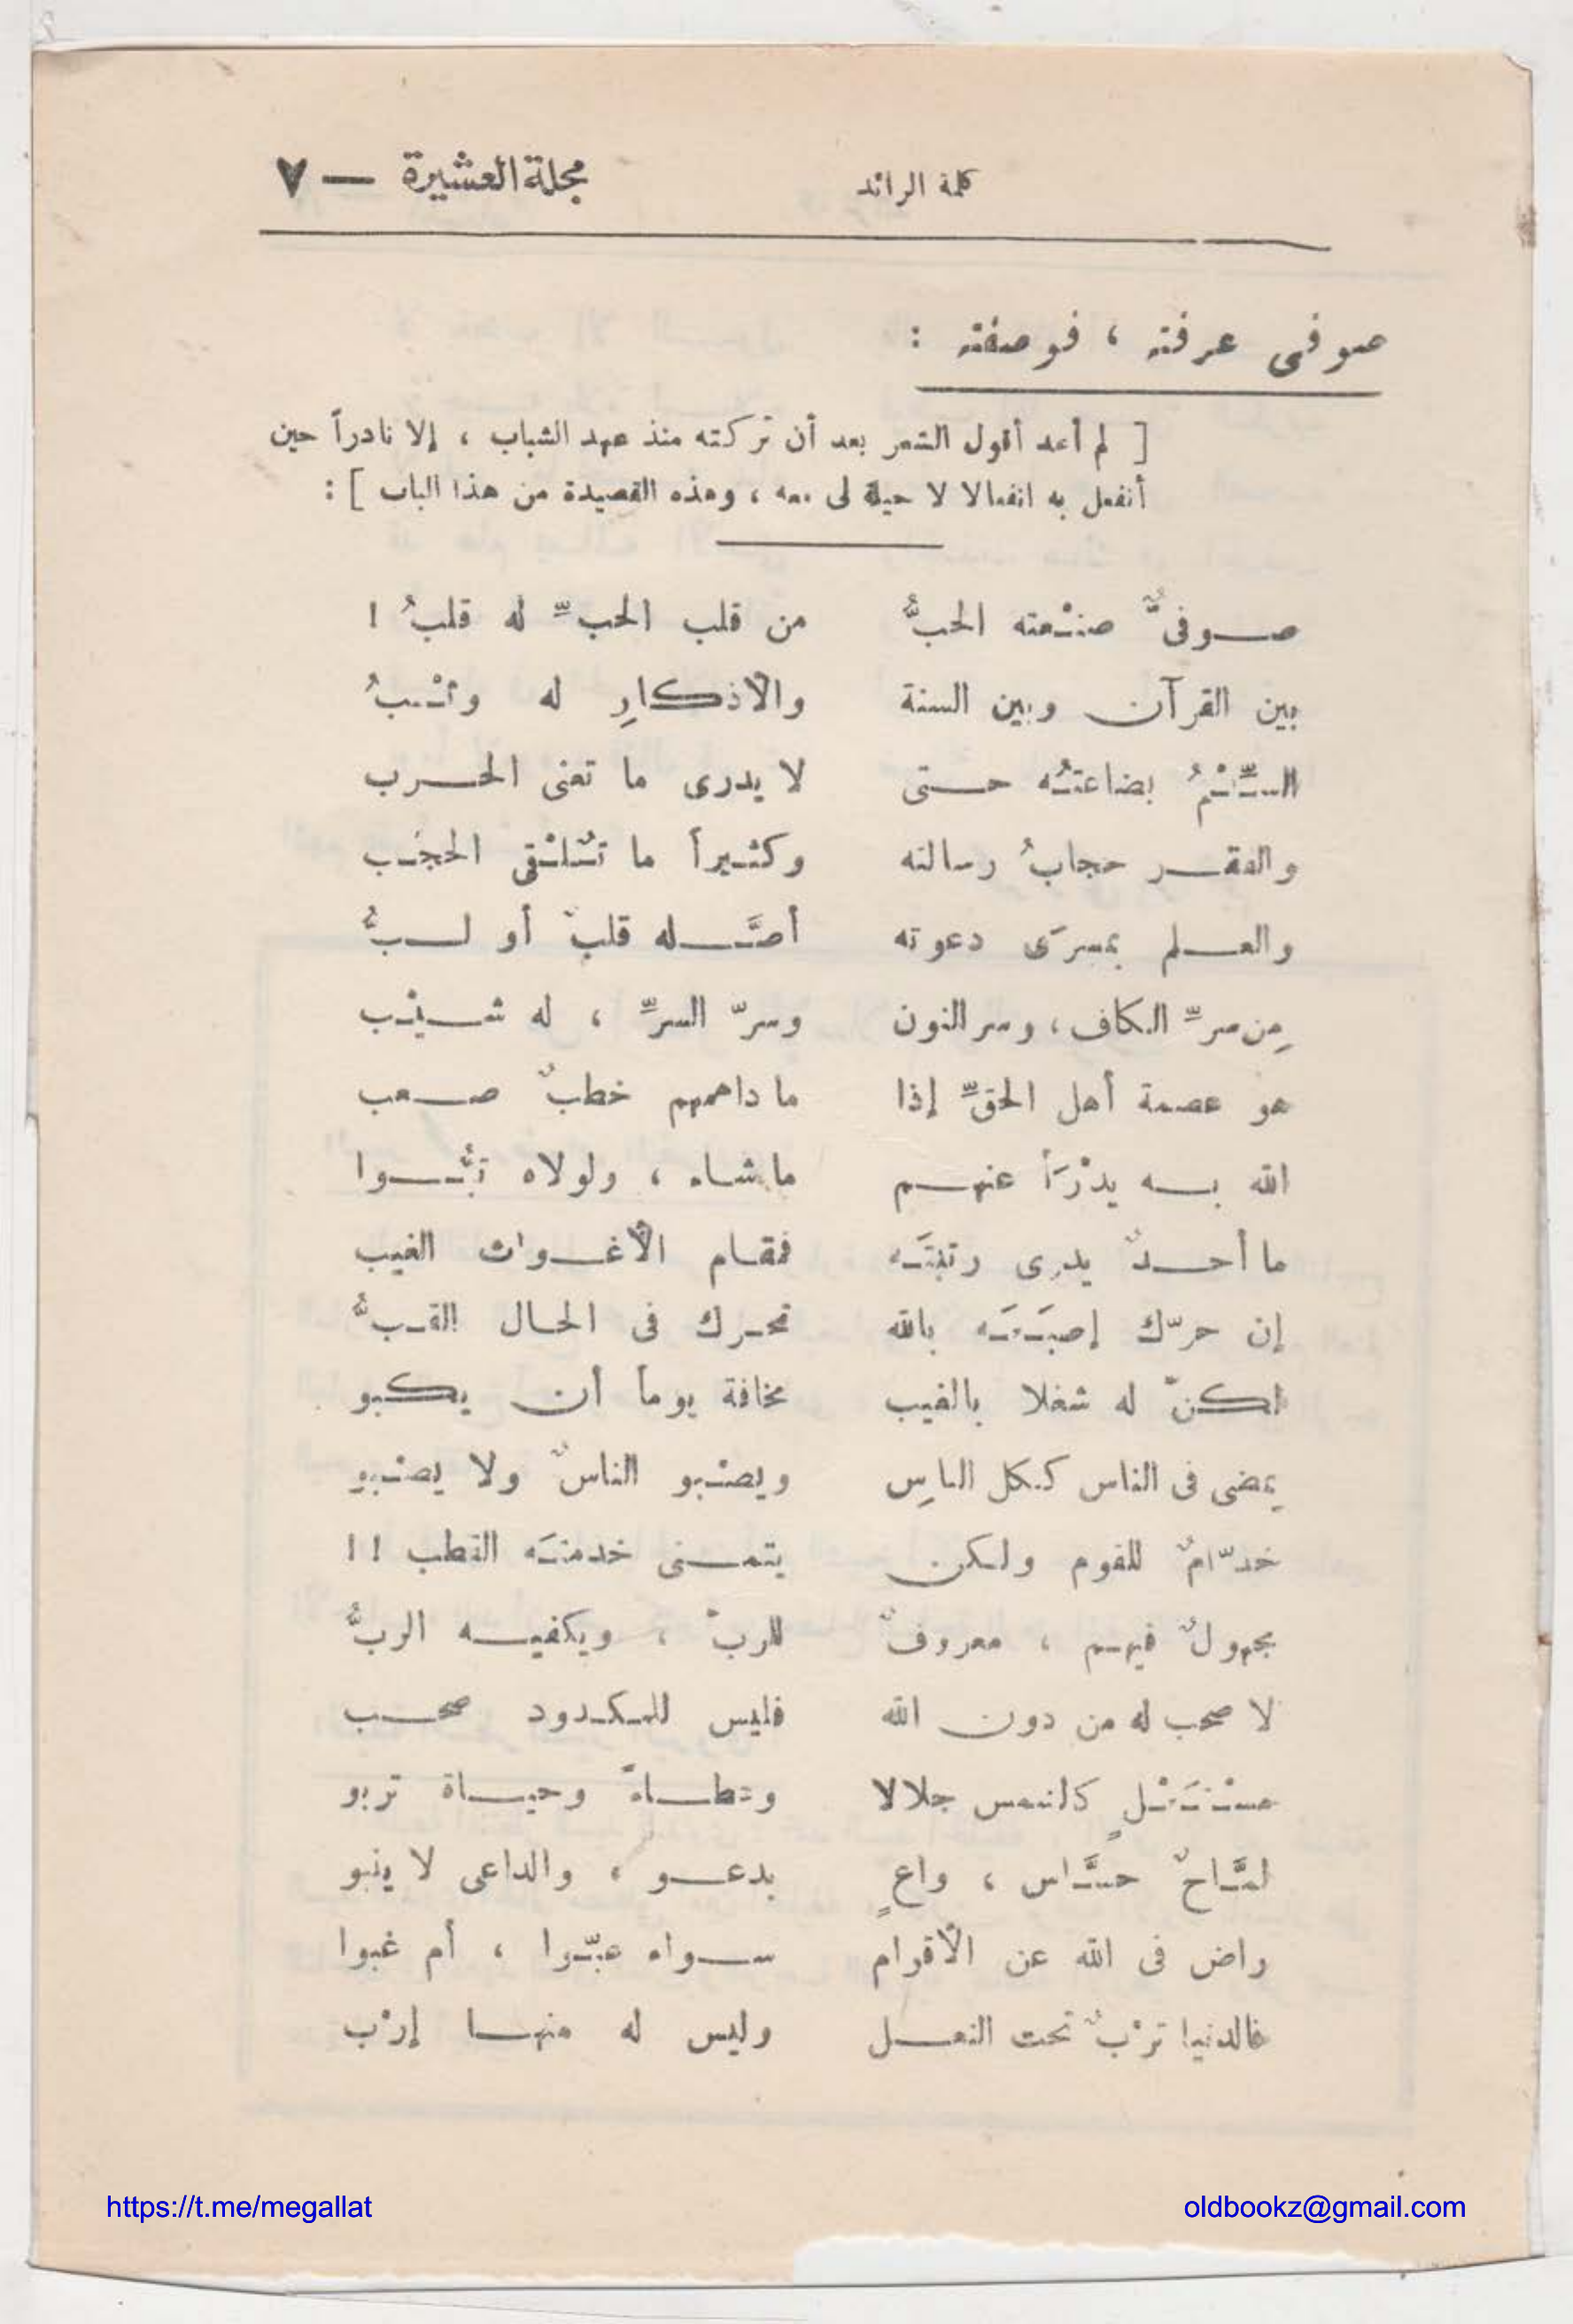 كلمة الرائد مجلة العشيرة — ٧
صوفى عرفته ، فوصفته :
[ لم أعد أقول الشعر بعد أن تركته منذ عهد الشباب ، إلا نادراً حين
أنفعل به انفعالا لا حيلة لى معه ، وهذه القصيدة من هذا الباب ] :
صـوفىٌّ صنْعته الحبُّ من قلب الحبِّ له قلبُ !
بين القرآن وبين السنة والأذكارِ له وثْبُ
السِّلْمُ بضاعتُه حـتى لا يدرى ما تعنى الحـرب
والفقـر حجابُ رسالته وكثـيراً ما تُلْقى الحجْب
والعـلم بمسرَى دعوته أصَّـله قلبٌ أو لـبُّ
مِن سرِّ الكاف ، وسر النون وسرّ السرِّ ، له شـيْب
هو عصمة أهل الحقِّ إذا ما داهمهم خطبٌ صـعب
الله بـه يدْرَأ عنهـم ما شاء ، ولولاه تبُّـوا
ما أحـدٌ يدرى رتبتَه فمقـام الأغـواث الغيب
إن حرّك إصبَعَه بالله تحـرك فى الحـال القـبُّ
لكنّ له شغلا بالغيب مخافة يوماً أن يكبو
يمضى فى الناس كـكل الناسِ ويصْبو الناسُ ولا يصْبو
خدّامٌ للقوم ولـكن يتمـنى خدمتَه القطب ! !
مجهولٌ فيهـم ، معروفٌ للربّ ، ويكفيـه الربُّ
لا صحب له من دون الله فليس للمـكـدود صحـب
مسْتَعْلٍ كالشمس جلالا وعطـاءً وحيـاة تربو
لمَّاحٌ حسَّاس ، واعٍ يدعـو ، والداعى لا ينبو
راض فى الله عن الأقوام سـواء عبّوا ، أم غبوا
فالدنيا ترْبٌ تحت النعـل وليس له منهـا إرْب
https://t.me/megallat oldbookz@gmail.com